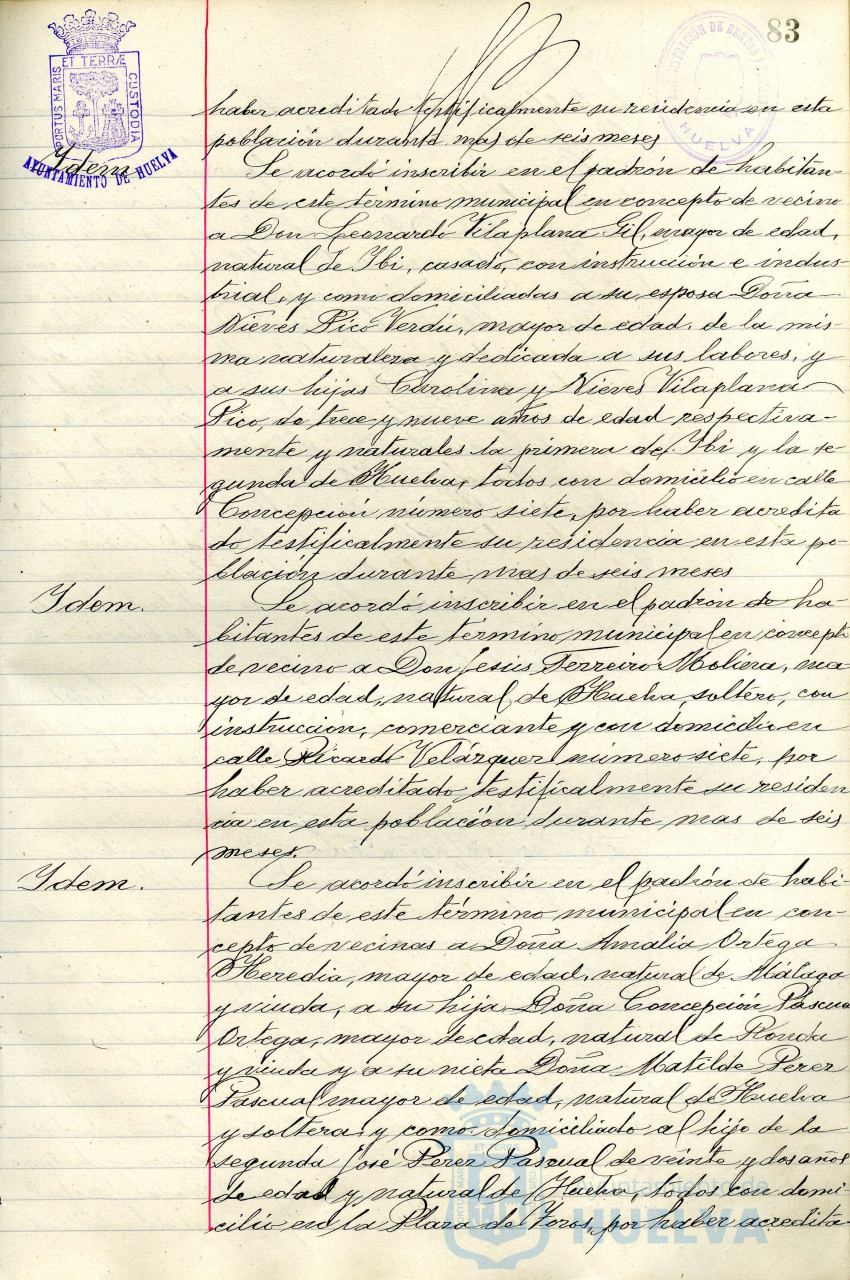 83
ET TERRÆ
PORTUS MARIS
CUSTODIA
AYUNTAMIENTO DE HUELVA
HUELVA
haber acreditado testificalmente su residencia en esta
población durante mas de seis meses
Ydem
Se acordó inscribir en el padrón de habitan-
tes de este término municipal en concepto de vecino
a Don Leonardo Vilaplana Gil, mayor de edad,
natural de Ybi, casado, con instrucción e indus-
trial, y como domiciliadas a su esposa Doña
Nieves Picó Verdú, mayor de edad, de la mis-
ma naturaleza y dedicada a sus labores, y
a sus hijas Carolina y Nieves Vilaplana
Pico, de trece y nueve años de edad respectiva-
mente y naturales la primera de Ybi y la se-
gunda de Huelva, todos con domicilio en calle
Concepción número siete, por haber acredita
do testificalmente su residencia en esta po-
blación durante mas de seis meses
Ydem.
Se acordó inscribir en el padrón de ha-
bitantes de este término municipal en concepto
de vecino a Don Jesús Ferreiro Moliera, ma-
yor de edad, natural de Huelva, soltero, con
instrucción, comerciante y con domicilio en
calle Ricardo Velázquez número siete, por
haber acreditado testificalmente su residen
cia en esta población durante mas de seis
meses.
Ydem.
Se acordó inscribir en el padrón de habi-
tantes de este término municipal en con-
cepto de vecinas a Doña Amalia Ortega
Heredia, mayor de edad, natural de Málaga
y viuda, a su hija Doña Concepción Pascual
Ortega, mayor de edad, natural de Ronda
y viuda y a su nieta Doña Matilde Perez
Pascual mayor de edad, natural de Huelva
y soltera, y como domiciliado al hijo de la
segunda José Perez Pascual de veinte y dos años
de edad y natural de Huelva, todos con domi-
cilio en la Plaza de Toros, por haber acredita-
Ayuntamiento de
HUELVA